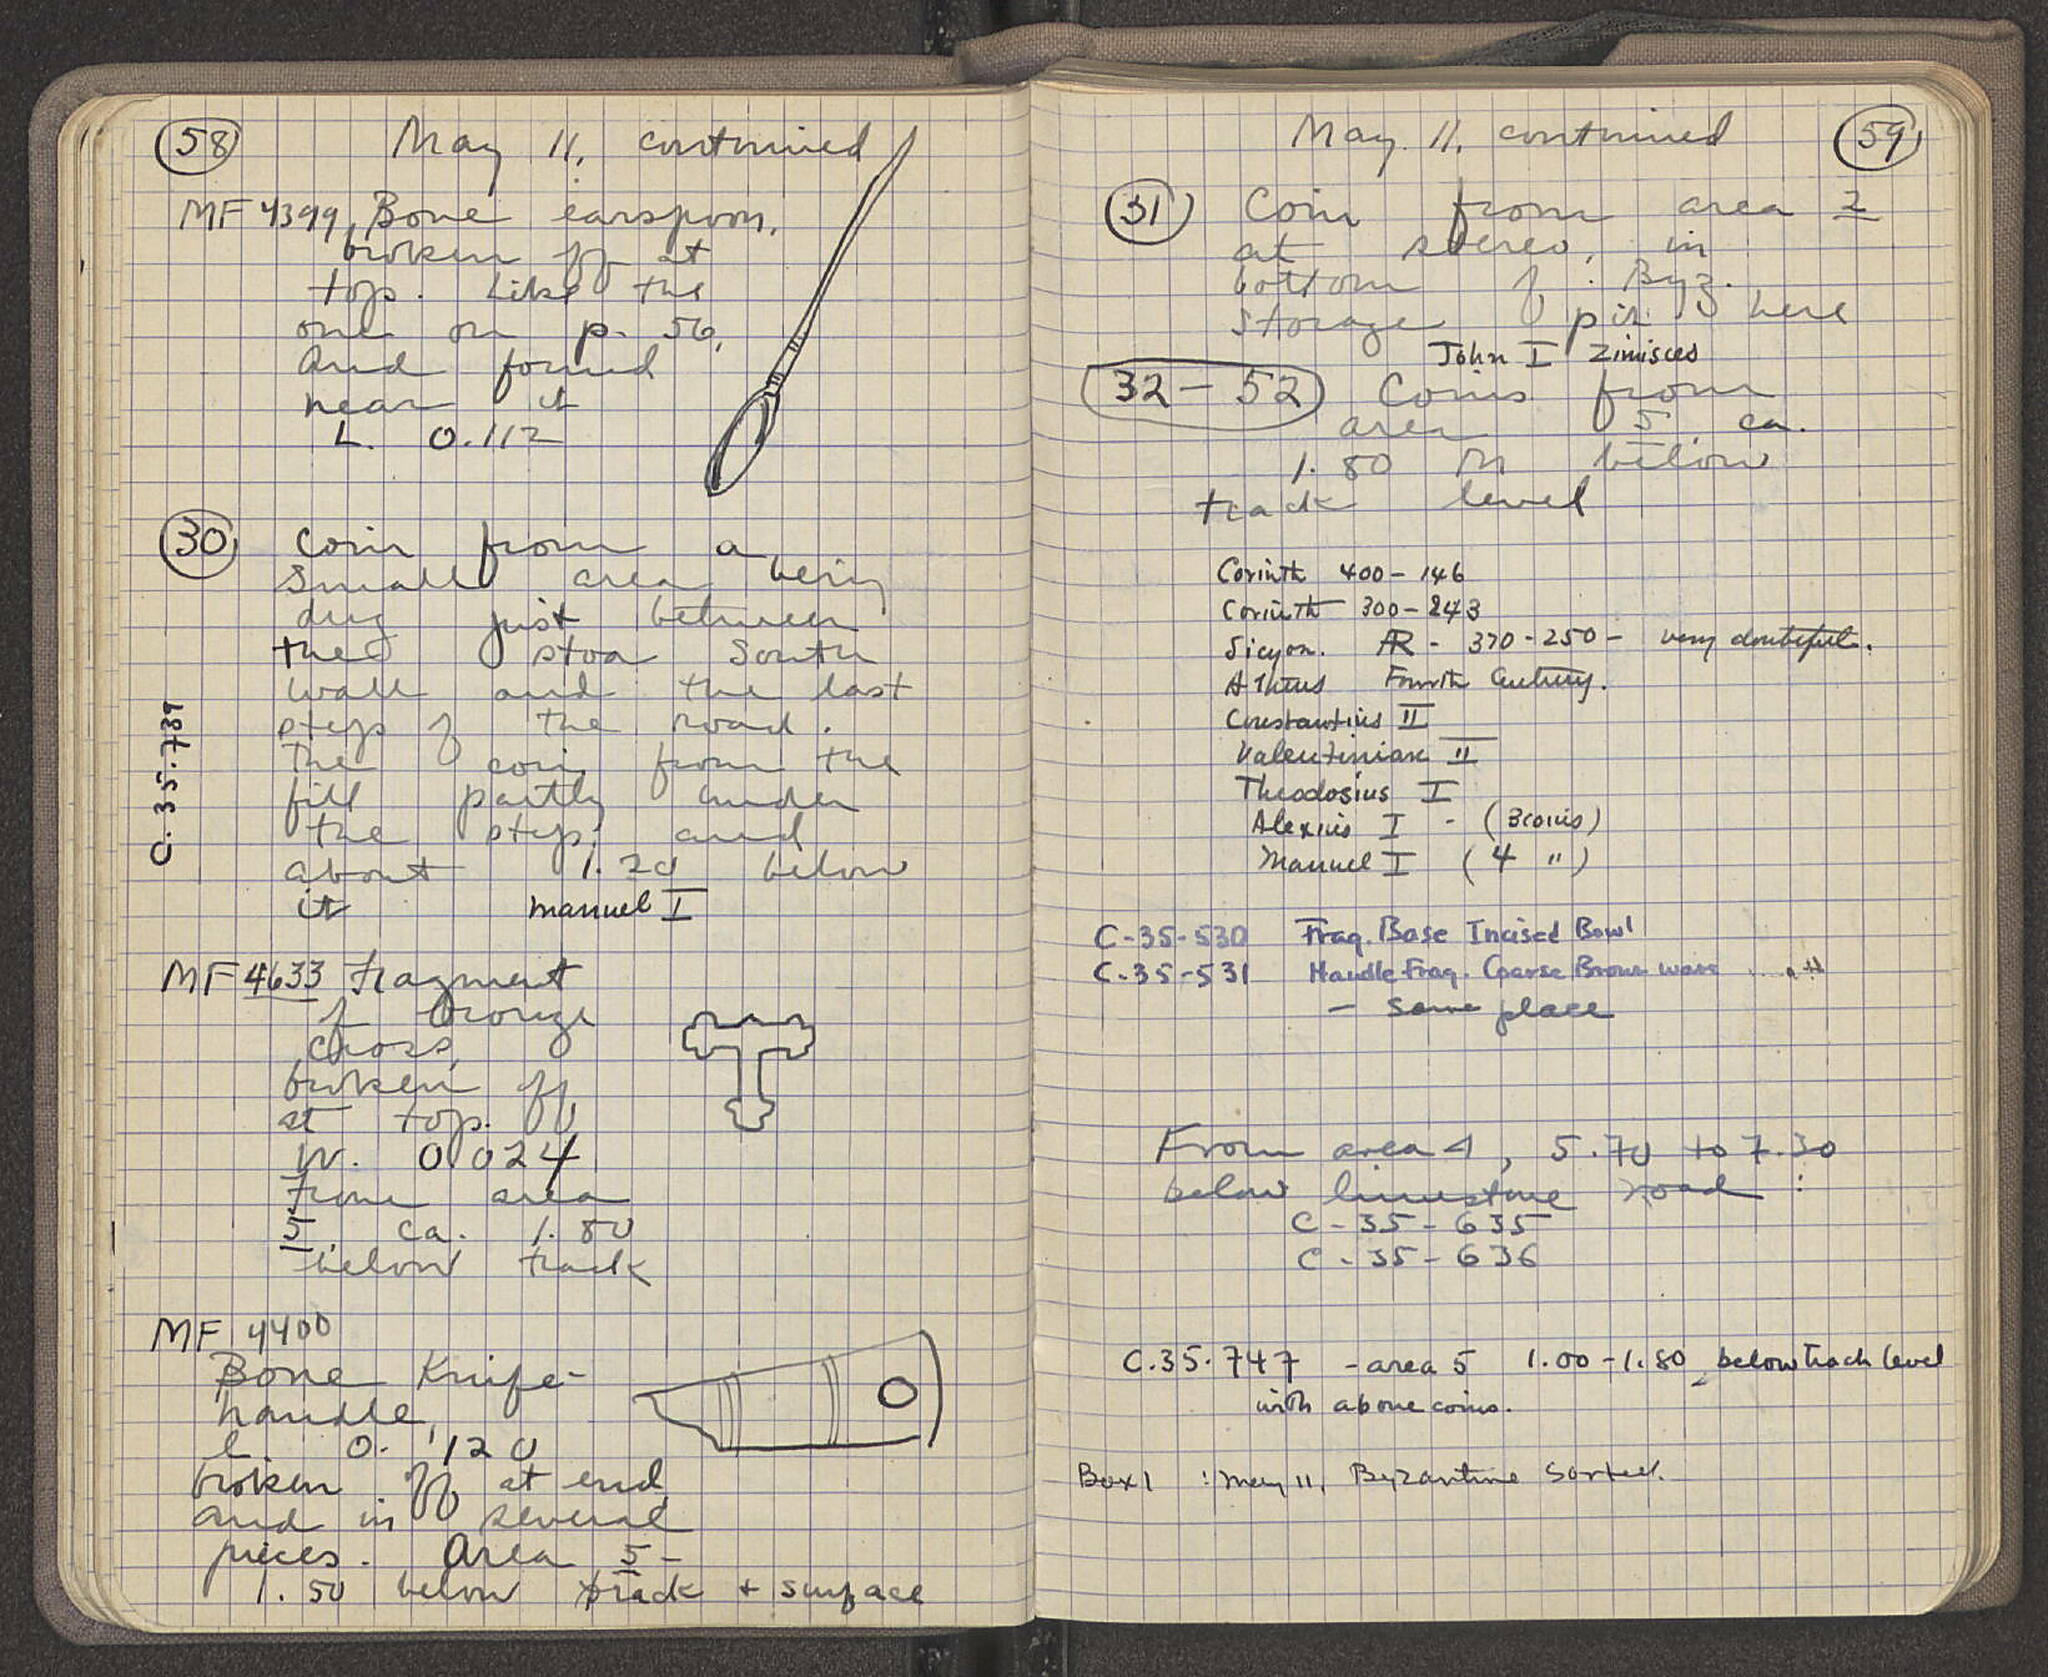 58
May 11, continued
MF 4399 Bone earspoon,
broken off at
top. Like the
one on p. 56,
and found
near it
L. 0.112
30 Coin from a
small area being
dug just between
the stoa South
wall and the last
steps of the road.
The coin from the
fill partly under
the steps, and
about 1.20 below
it Manuel I
C.35.739
MF 4633 Fragment
of bronze
cross,
broken off
at top.
W. 0.024
from area
5, ca. 1.80
below track
MF 4400
Bone Knife-
handle,
L. 0.120
broken off at end
and in several
pieces. Area 5 -
1.50 below track + surface
May 11, continued
59
31 Coin from area 2
at stereo, in
bottom of Byz.
storage pit here
John I Zimisces
32 - 52 Coins from
area 5 ca.
1.80 m below
track level
Corinth 400 - 146
Corinth 300 - 243
Sicyon. AR - 370 - 250 - very doubtful.
Athens Fourth Century.
Constantius II
Valentinian II
Theodosius I
Alexius I - (3 coins)
Manuel I (4 ")
C-35-530 Frag. Base Incised Bowl
C-35-531 Handle Frag. Coarse Brown ware
- Same place
From area 4, 5.70 to 7.30
below limestone road :
C - 35 - 635
C - 35 - 636
C.35.747 - area 5 1.00 - 1.80 below track level
with above coins.
Box 1 : May 11, Byzantine Sorted.